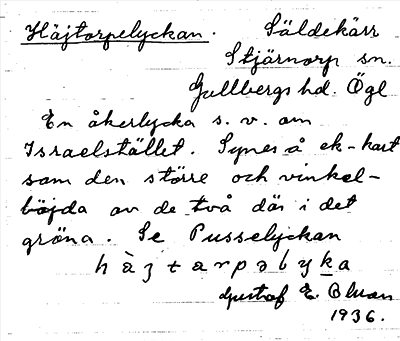 Häjtorpelyckan. Säldekärr
Stjärnorp sn.
Gullbergs hd. Ögl
En åkerlycka s. v. om
Israelstället. Synes å ek-kart
som den större och vinkel-
böjda av de två där i det
gröna. Se Pusselyckan
hàjtarpəlyka
Gustaf E. Blman
1936.